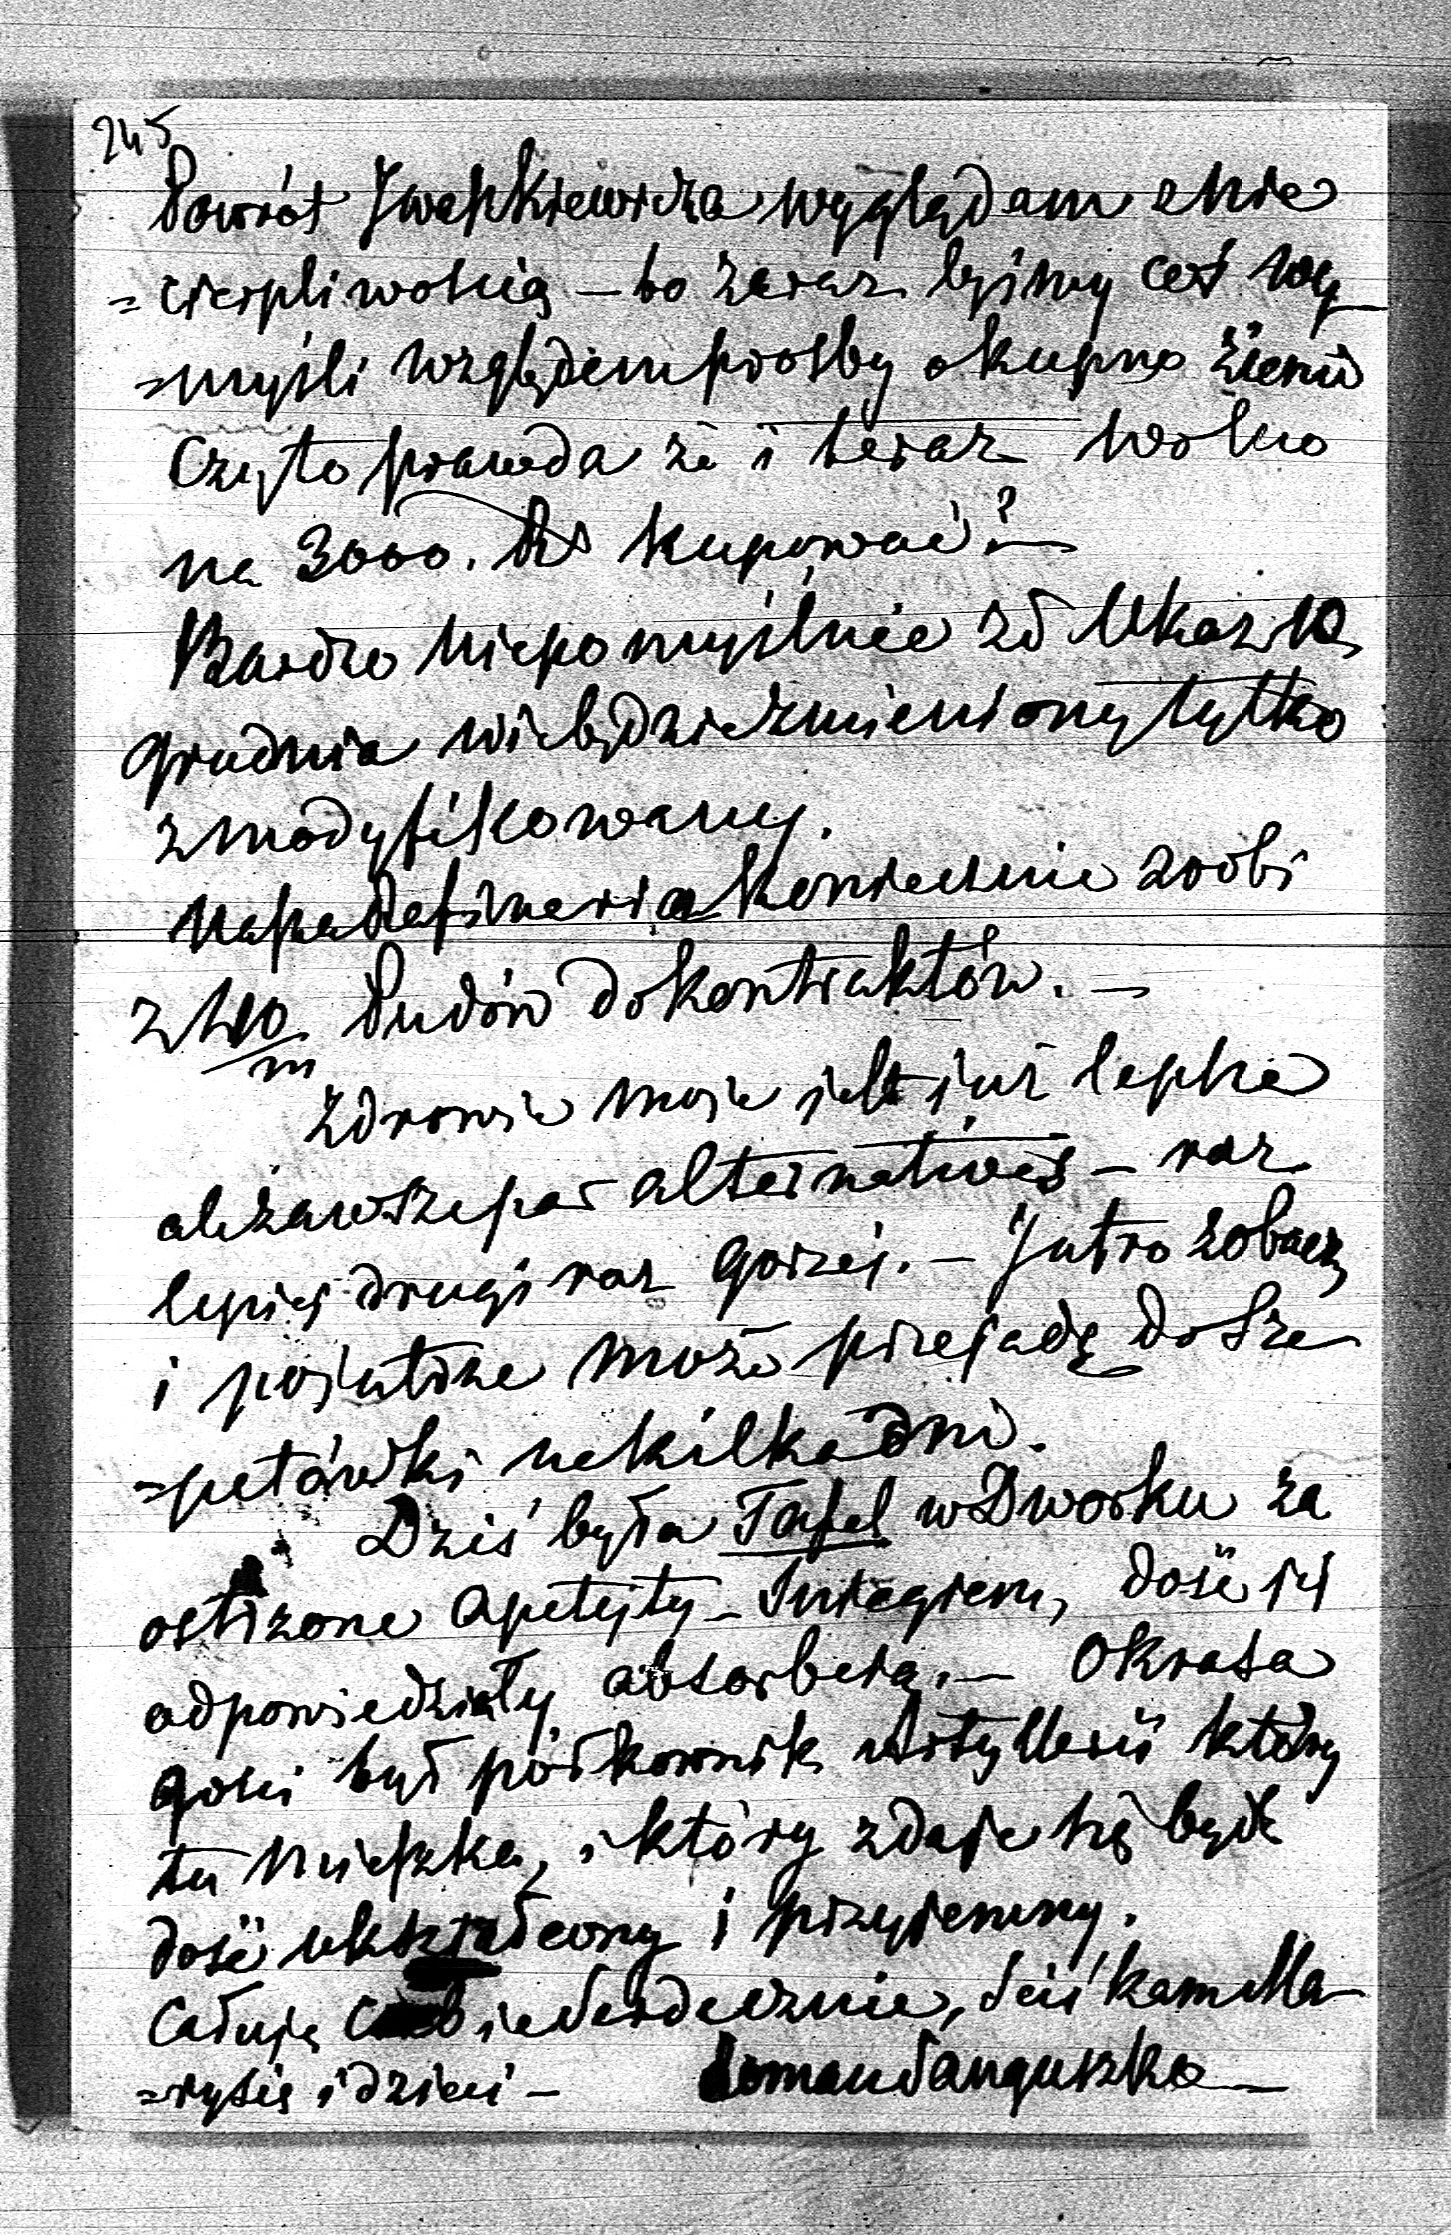 245
Powrót Iwaszkiewicza wyglądam z nie
=cierpliwością – bo zaraz byśmy coś wy
=myśli względem prośby o kupno ziemi
Czy to prawda że i teraz wolno
na 3000. Rs kupować? –
Bardzo niepomyślnie że Ukaz 10
grudnia nie będzie zmieniony tylko
zmodyfikowany.
Nasza Rafineria koniecznie zrobi
Pudów do kontraktów. –
Zdrowie moje jest już lepsze
ale zawsze par alternatives – raz
lepiej drugi raz gorzej. – Jutro zobaczę
i pojutrze może przejadę do Sze
=petówki na kilka dni.
Dziś była Tafel w Dworku za
ostrzone apetyty śniegiem, dość jej
odpowiedziały absorberą. – Okrasa
gości był półkownik Artyllerii który
tu mieszka, i który zdaje się być
dość ukształcony i przyjemny.
Całuję Ciebie serdecznie, ściskam Ma
=rysię i dzieci – Roman Sanguszko